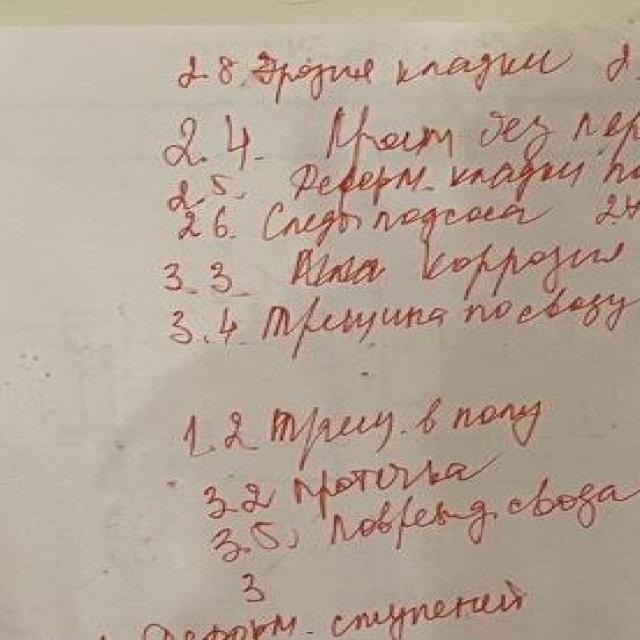 2.8 Эрозия кладки 2
2.4. Прост без пер
2.5. Деформ. кладки по
2.6. Следы подсоса 2.4
3.3 коррозия
3.4 Трещина по своду
1.2 Трещ. в полу
3.2 Протечка
3.5. Поврежд. свода
3
Деформ. ступеней